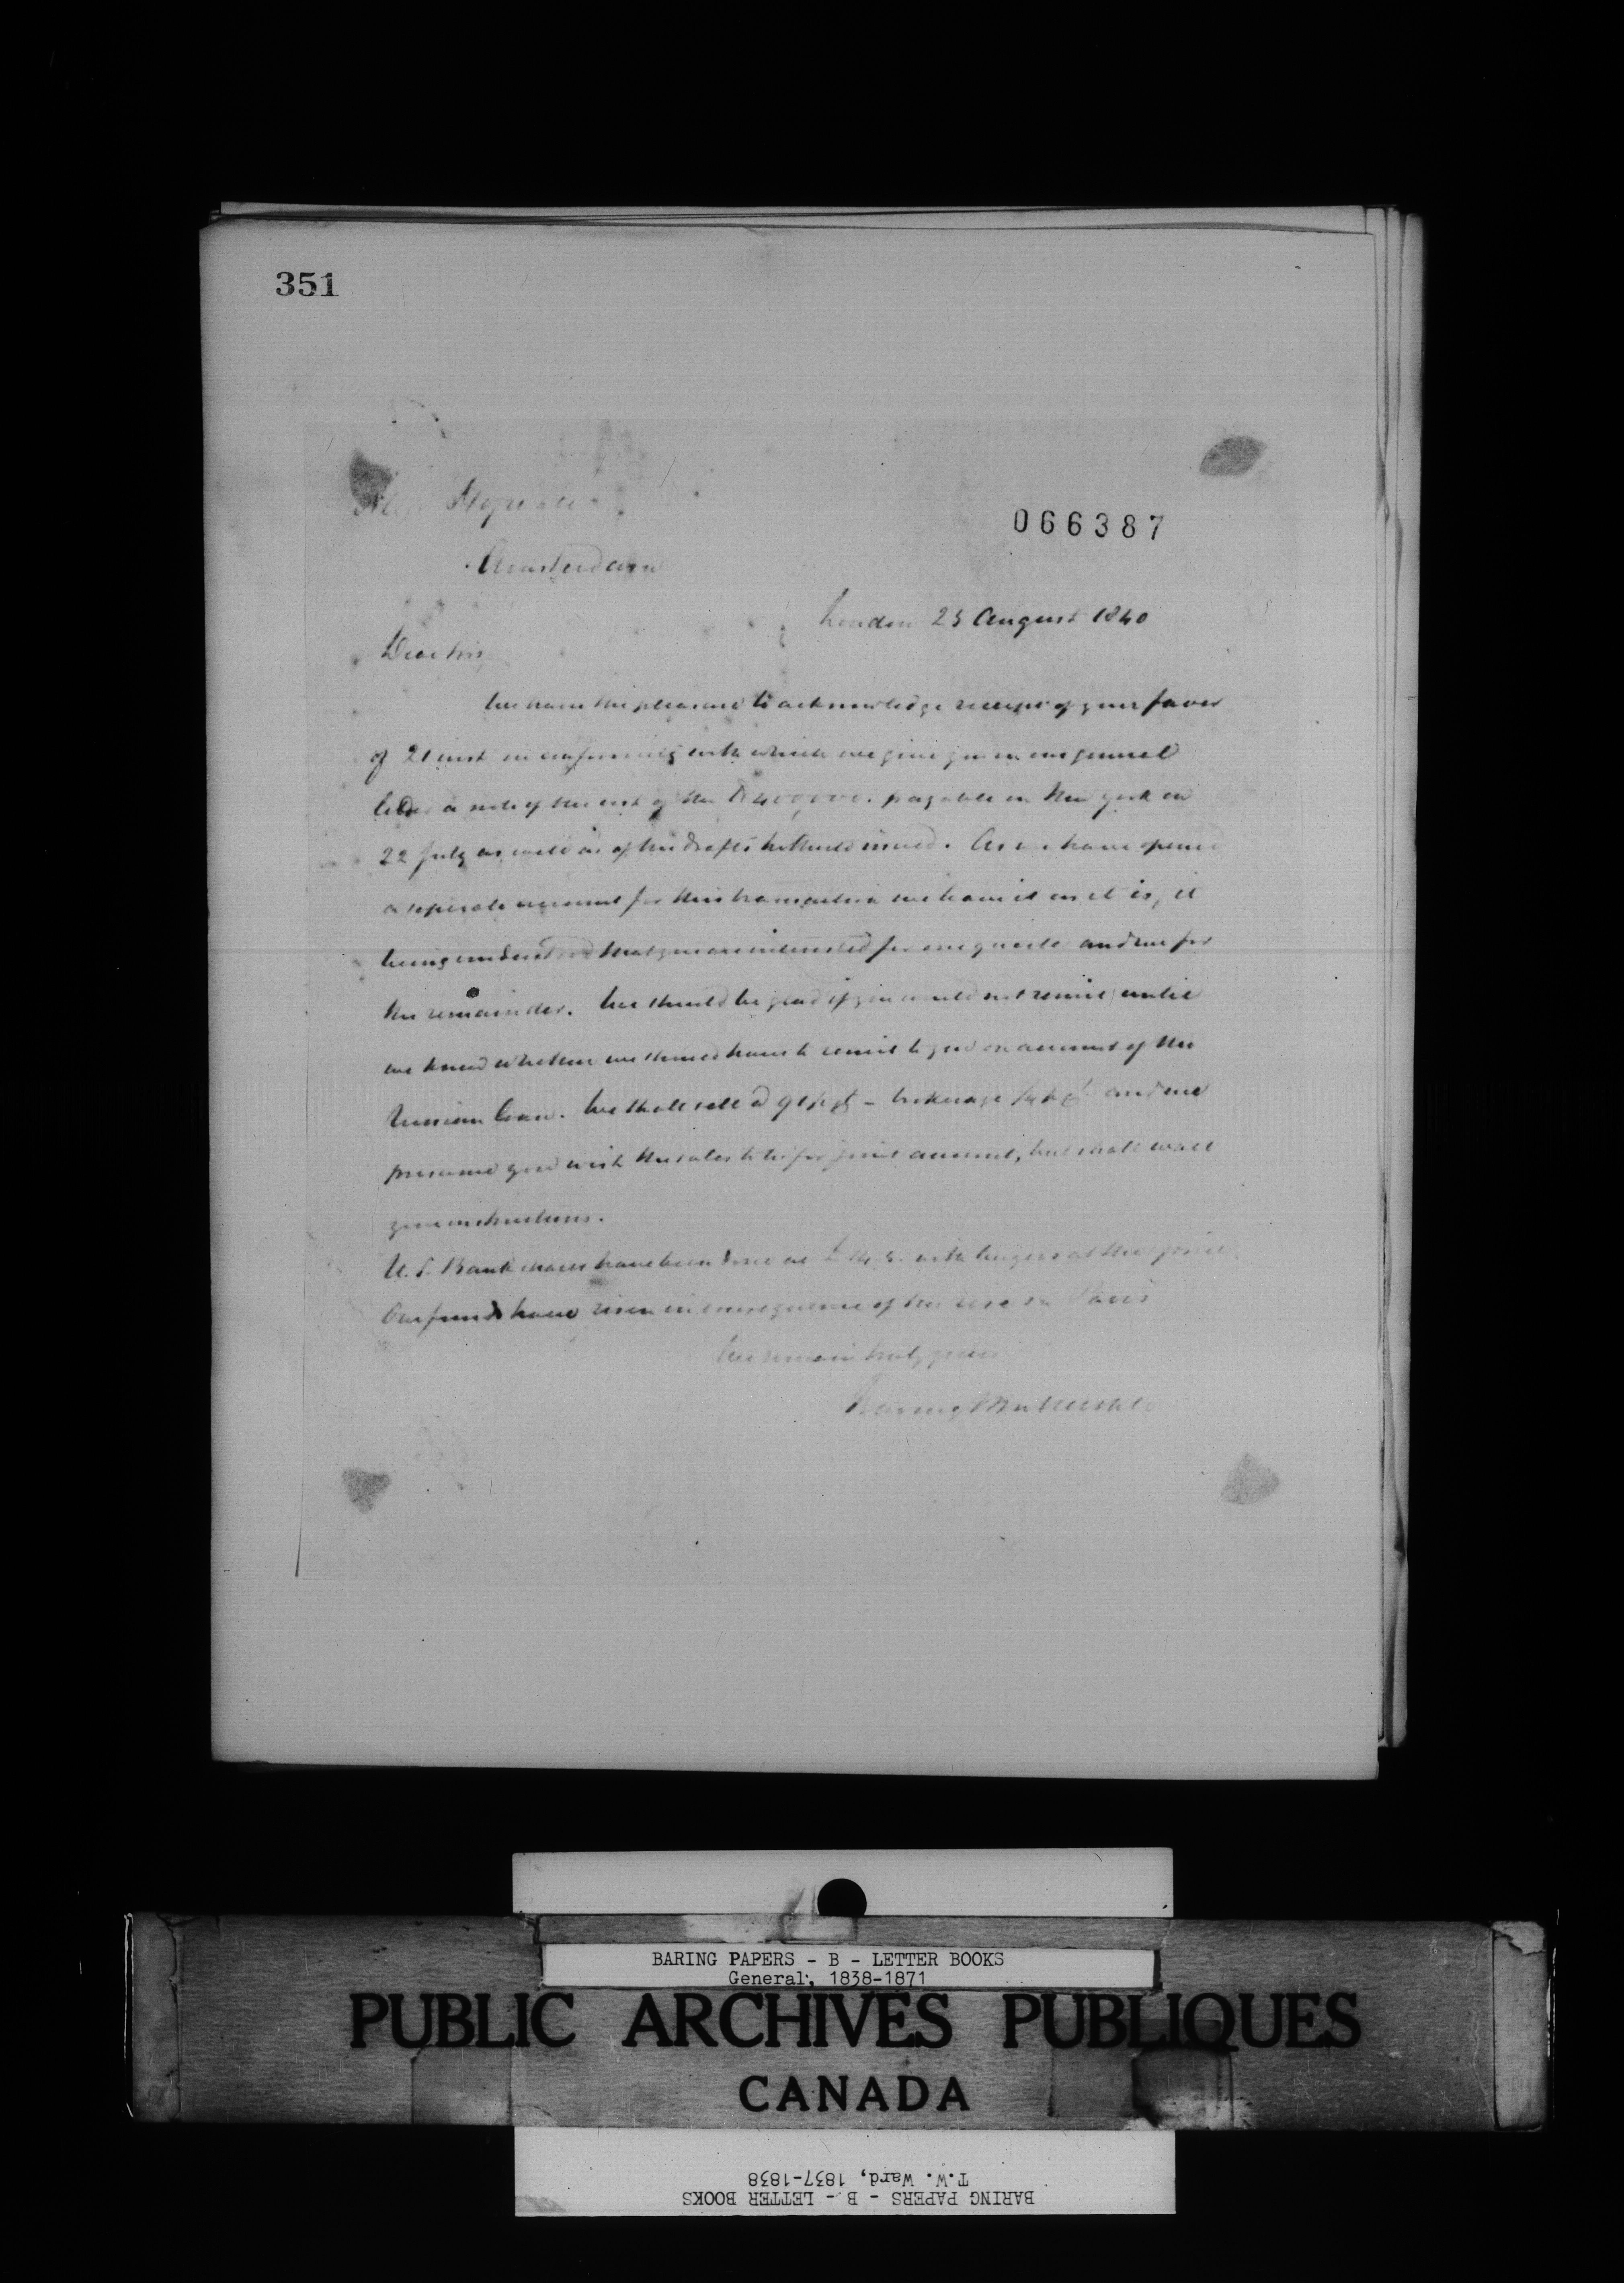 351
Messrs Hope & Co
066387
Amsterdam
London 25 August 1840
Dear Sirs
We have the pleasure to acknowledge receipt of your favor
of 21 inst in conformity with which we give you in our general
letter a note of the cost of the $400,000. payable in New York on
22 July as well as of the drafts hitherto issued. As we have opened
a seperate account for this transaction we leave it as it is, it
being understood that you are interested for one quarter and we for
the remainder. We should be glad if you would not remit until
we know whether we should have to remit to you on account of the
Russian loan. We shall sell @ 91 pct - brokerage 1/4 pct and we
presume you wish the sales to be for joint account, but shall await
your instructions.
U.S. Bank shares have been done at £ 14.5. with buyers at that price.
Our funds have risen in consequence of the rise in Paris
We remain truly yours
Baring Brothers & Co
BARING PAPERS - B - LETTER BOOKS
General, 1838-1871
PUBLIC ARCHIVES PUBLIQUES
CANADA
T.W. Ward, 1837-1838
BARING PAPERS - B - LETTER BOOKS